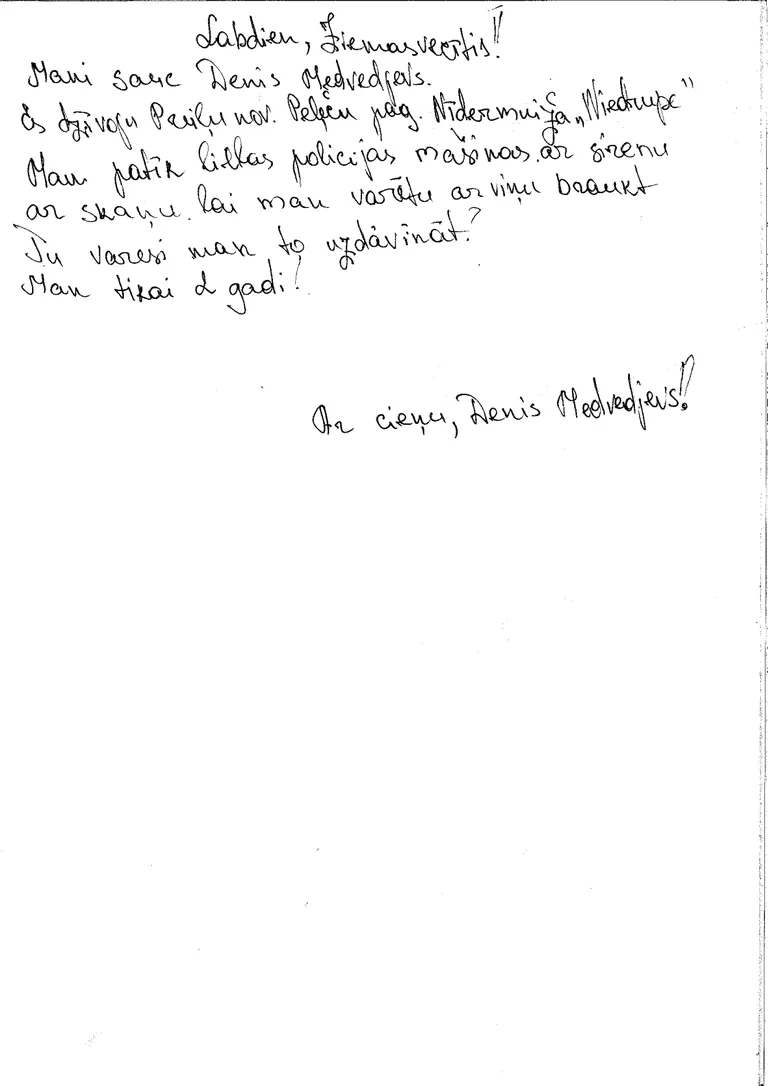 Labdien, Ziemasvecītis!
Mani sauc Denis Medvedjevs.
Es dzīvoju Preiļu nov. Pelēču pag. Nīdermuiža „Niedrupe"
Man patīk lielas policijas mašīnas ar sirēnu
ar skaņu. lai man varētu ar viņu braukt
Tu varesi man to uzdāvināt?
Man tikai 2 gadi!
Ar cieņu, Denis Medvedjevs!